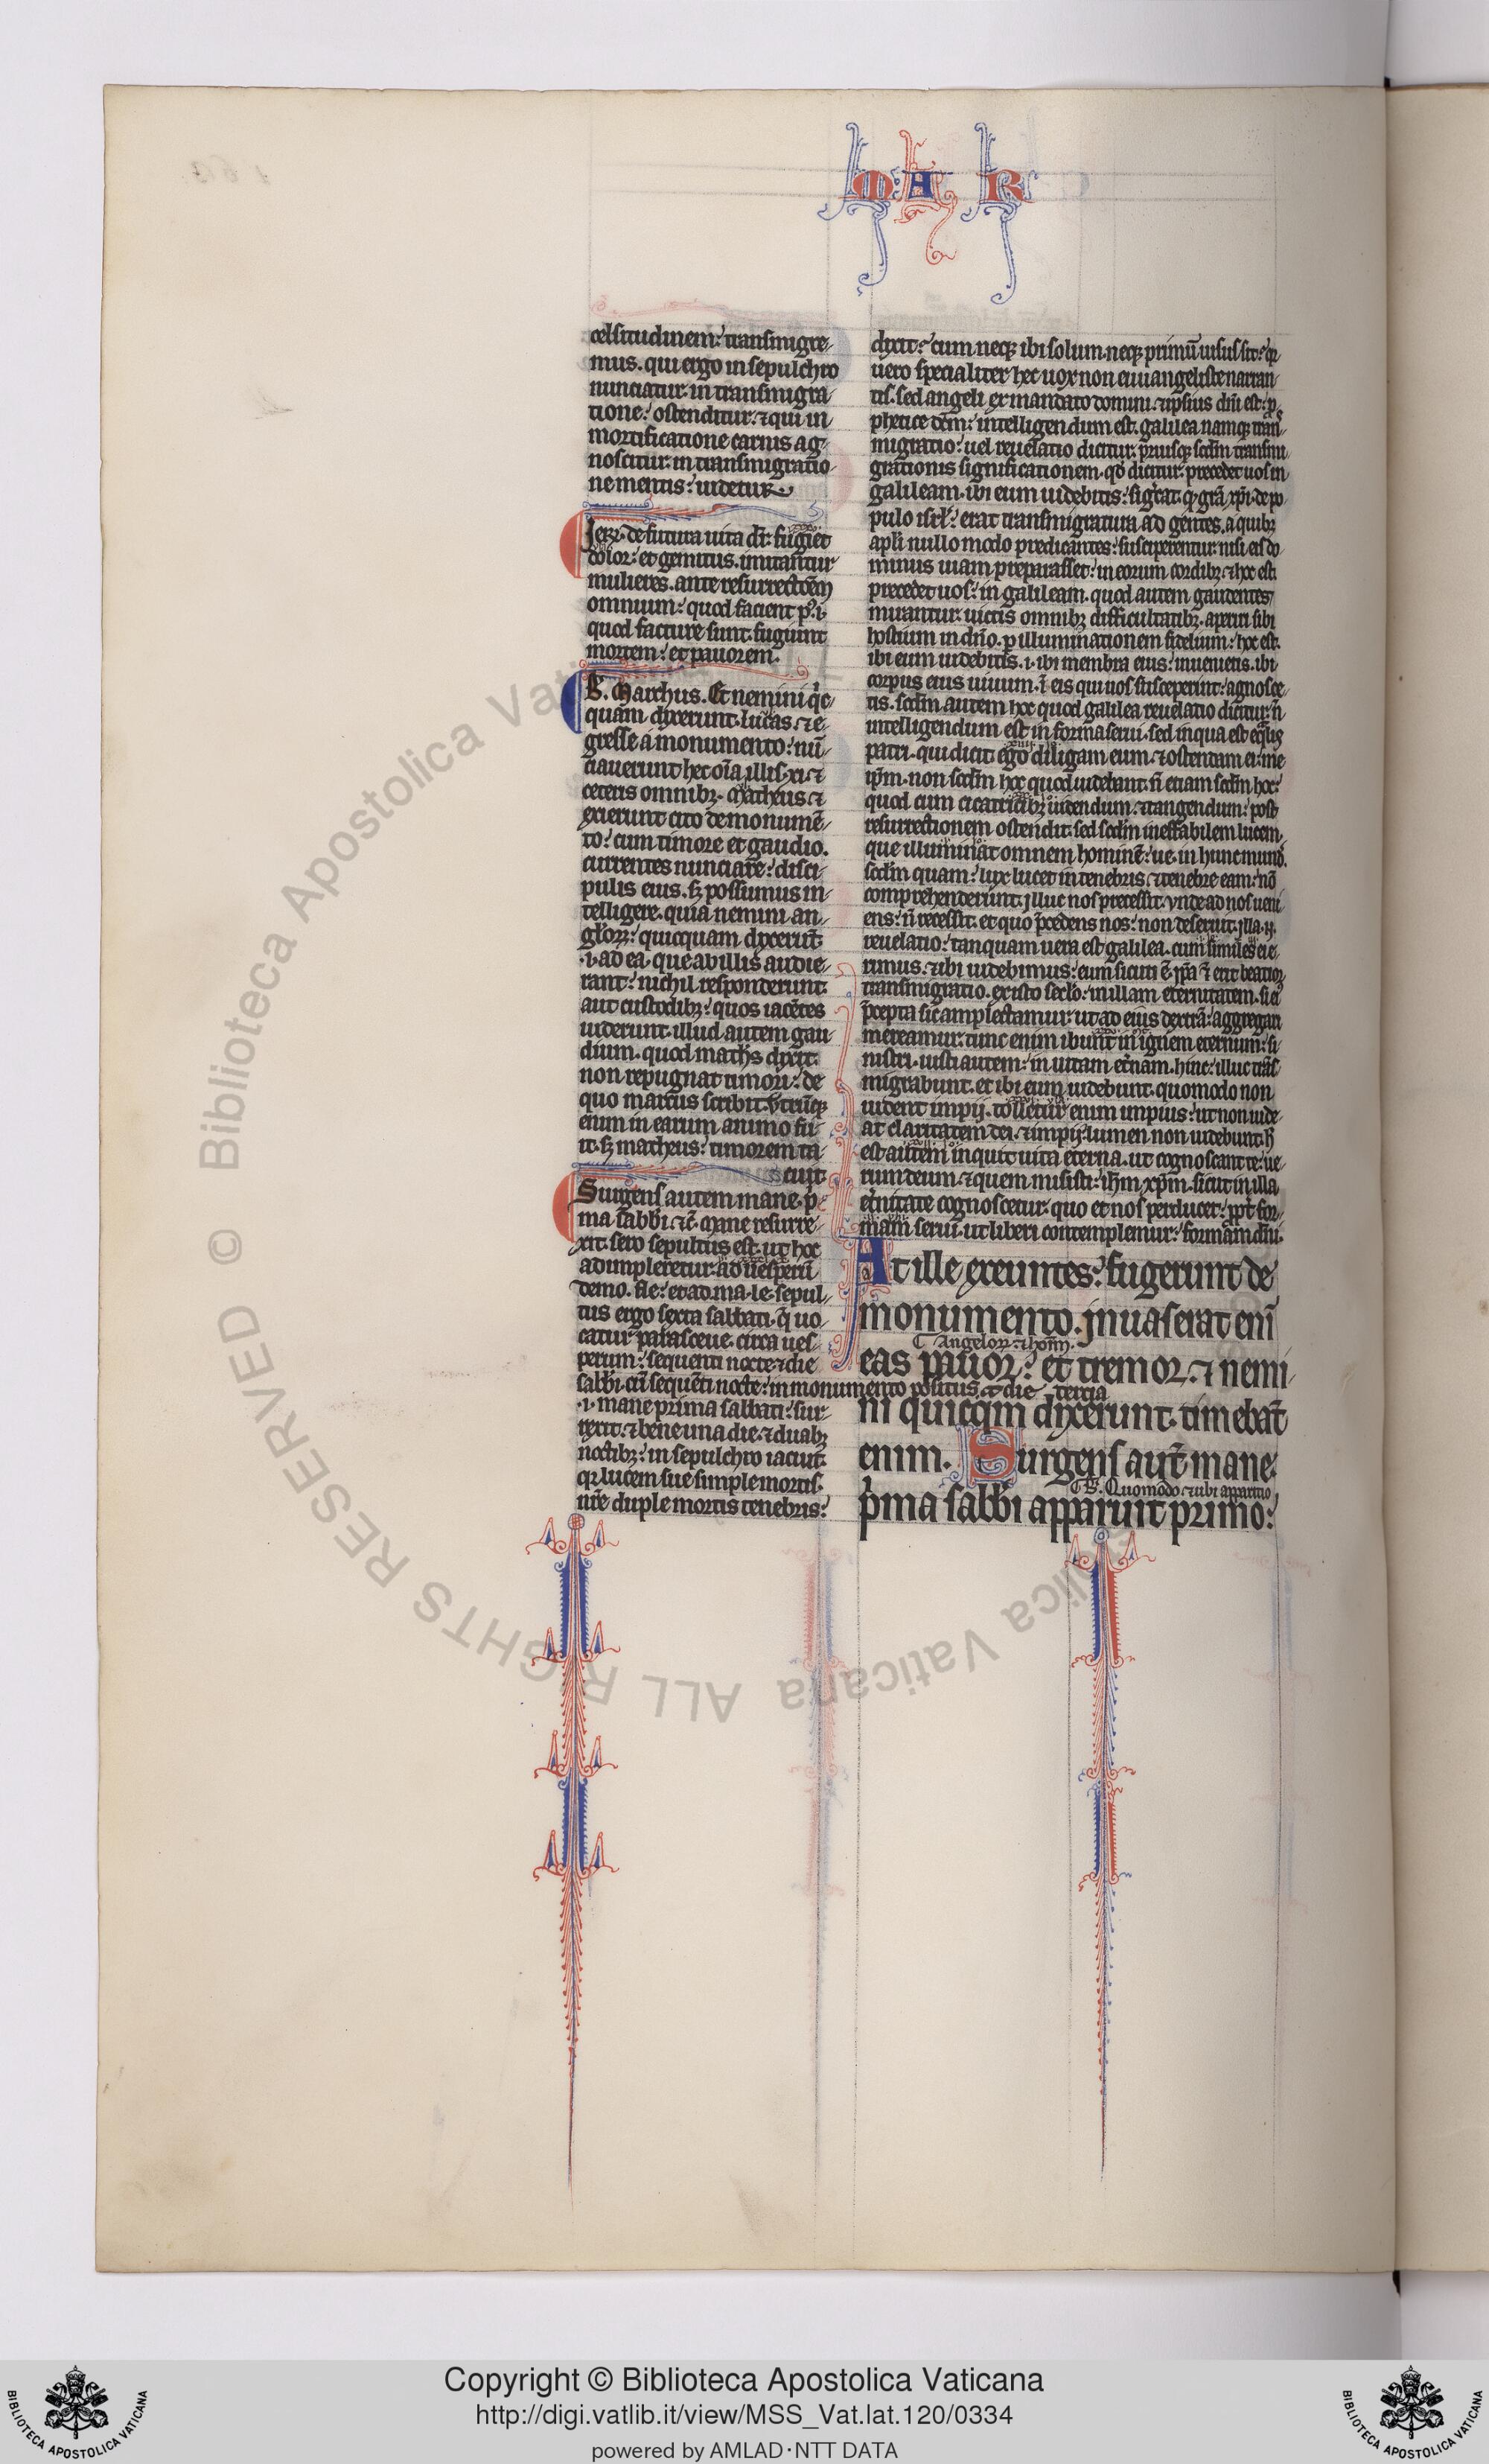 MAR
celsitudinem: transmigre-
mus. qui ergo in sepulchro
nunciatur. in transmigra-
tione: ostenditur. ⁊ qui in
mortificatione carnis ag-
noscitur. in transmigratio-
ne mentis: uidetur
Ierꝝ. de futura uita dr̄: fugiet
dolor: et gemitus. imitantur
mulieres. ante resurrectōem
omnium: quod facient p̾. i.
quod facture sunt. fugiunt
mortem: et pauorem.
B. Marchus. Et nemini qͥc-
quam dixerunt. lucas. ⁊ e-
gresse a monumento: nū-
ciauerunt hec oīa illis. xi. ⁊
ceteris omnibꝫ. Matheus. ⁊
exierunt cito de monumē-
to: cum timore et gaudio.
currentes nunciare: disci-
pulis eius. sꝫ possumus in-
telligere. quia nemini an-
gl̄oꝝ: quicquam dixerūt.
.i. ad ea. que ab illis audie-
rant: nichil responderunt.
aut custodibꝫ: quos iacētes
uiderunt. illud autem gau-
dium. quod math̄s dixit.
non repugnat timori: de
quo marcus scribit. vtrūqꝫ
enim in earum animo fu-
it. sꝫ matheus: timorem ta-
cuit
Surgens autem mane. p̄-
ma sabb̄i. ⁊c̄. Mane resurre-
xit. sero sepultus est. ut hoc
adimpleretur. ad uesperū
demo. fle: et ad. ma. le. sepul-
tus ergo sexta sabbati. q̄ uo-
catur parasceue. circa ues-
perum: sequenti nocte. ⁊ die
sabb̄i. cū sequēti nocte: in monumento positus. ⁊ die tercia
.i. mane prima sabbati: sur-
rexit. ⁊ bene una die. ⁊ duabꝫ
noctibꝫ: in sepulchro iacuit.
qꝛ lucem sue simple mortis.
nr̄e duple mortis tenebris:
dixit: cum neqꝫ ibi solum. neqꝫ primū uisus sit:
uero specialiter hec uox non euuangeliste narran-
tis. sed angeli ex mandato domini. ⁊ ipsius dn̄i est:
phetice dcm̄: intelligendum est. galilea namqꝫ trans-
migratio: uel reuelatio dicitur. priusqꝫ scdm̄ transmi-
grationis significationem. qd̄ dicitur. precedet uos in
galileam. ibi eum uidebitis: sigͥcat. qꝫ grā xp̄i. de po-
pulo isrl̄: erat transmigratura ad gentes. a quibꝫ
apl̄i nullo modo predicantes: susciperentur. nisi eis do-
minus uiam preparasset: in eorum cordibꝫ. ⁊ hoc est.
precedet uos: in galileam. quod autem gaudentes
muantur. uictis omnibꝫ difficultatibꝫ. aperiri sibi
hostium in dn̄o. p illuminationem fidelium: hoc est.
ibi eum uidebitis. i. ibi membra eius: inuenietis. ibi
corpus eius uiuum. ī eis qui uos susceperint: agnosce-
tis. scdm̄ autem hoc quod galilea reuelatio dicitur: n̄
intelligendum est in forma serui. sed in qua est eqͣlis
patri. qui dicit ego diligam eum. ⁊ ostendam ei: me
ip̄m. non scdm̄ hoc quod uidebant. n̄ etiam scdm̄ hoc:
quod cum cicatricibꝫ uidendum. ⁊ tangendum: post
resurrectionem ostendit. sed scdm̄ ineffabilem lucem.
que illuminat omnem hominē: ue. in hunc mund̄.
scdm̄ quam: lux lucet in tenebris. ⁊ tenebre eam: nō
comprehenderunt. illuc nos precessit. vnde ad nos ueni-
ens: n̄ recessit. et quo p̄cedens nos: non deseruit. illa. ḡ.
reuelatio: tanquam uera est galilea. cum similes ei e-
rimus. ⁊ ibi uidebimus: eum sicuti ē.
transmigratio. ex isto scl̄o: in illam eternitatem. si ei9
p̄cepta sic amplectamur. ut ad eius dextrā: aggregari
mereamur. tunc enim ibunt in ignem eternum: si-
nistri. iusti autem: in uitam et̄nam. hinc: illuc trās-
migrabunt. et ibi eum uidebunt. quomodo non
uident impij. tolletur enim impius: ut non uide-
at claritatem dei. ⁊ impij: lumen non uidebunt. h̄
est autem inquit uita eterna. ut cognoscant te: ue-
rum deum. ⁊ quem misisti: ih̄m xp̄m. sicut in illa
et̄nitate cognoscetur. quo et nos perducet: ppt̄ for-
mam serui. ut liberi contemplemur: formam dn̄i.
At ille exeuntes: fugerunt de
monumento. inuaserat enī
Angeloꝝ. ⁊ hoīm.
eas pauor: et tremor. ⁊ nemi-
ni quicqm̄ dixerunt. timebāt
enim. Surgens aut̄ mane.
B. Quomodo. ⁊ ubi apparitio
p̄ma sabb̄i apparuit primo:
© Biblioteca Apostolica Vaticana ALL RIGHTS RESERVED
BIBLIOTECA APOSTOLICA VATICANA
Copyright © Biblioteca Apostolica Vaticana
http://digi.vatlib.it/view/MSS_Vat.lat.120/0334
powered by AMLAD・NTT DATA
BIBLIOTECA APOSTOLICA VATICANA